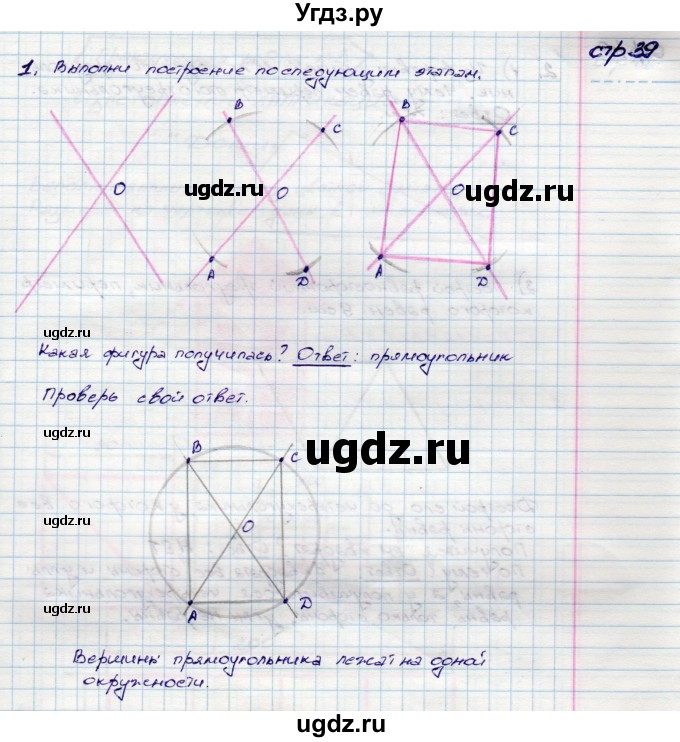 Угдз.ру
стр.39
1. Выполни построение последующим этапам.
B
B
C
C
O
ugdz.ru
O
ugdz.ru
O
A
A
D
D
ugdz.ru
Какая фигура получилась? Ответ: прямоугольник
Проверь свой ответ.
ugdz.ru
B
C
ugdz.ru
ugdz.ru
O
A
D
ugdz.ru
ugdz.ru
Вершины прямоугольника лежат на одной
окружности.
ugdz.ru
ugdz.ru